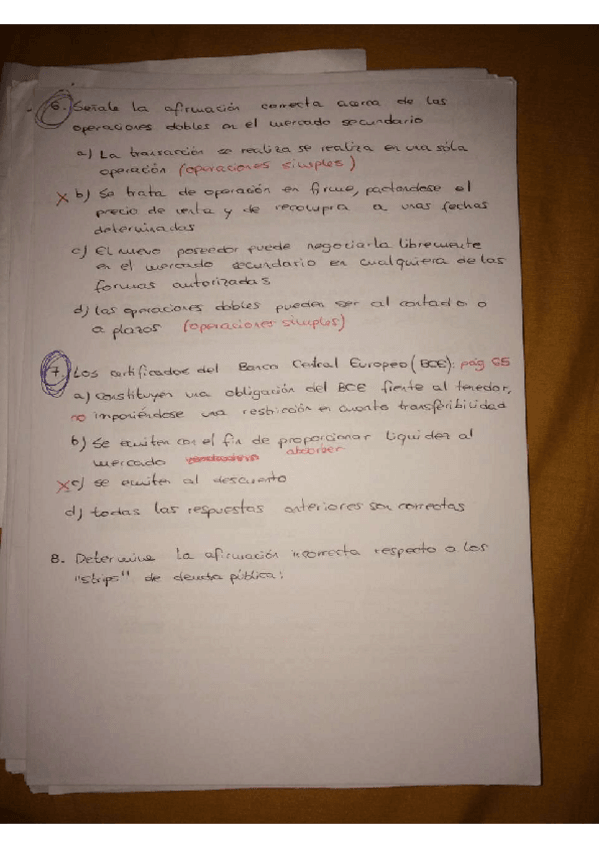 6. Señale la afirmación correcta acerca de las
operaciones dobles en el mercado secundario
a) La transacción se realiza se realiza en una sóla
operación (operaciones simples)
X b) Se trata de operación en firme, pactandose el
precio de venta y de recompra a unas fechas
determinadas
c) El nuevo poseedor puede negociarla libremente
en el mercado secundario en cualquiera de las
formas autorizadas
d) las operaciones dobles pueden ser al contado o
a plazos (operaciones simples)
7. Los certificados del Banco Central Europeo (BCE): pág 65
a) constituyen una obligación del BCE frente al tenedor,
no imponiéndose una restricción en cuanto transferibilidad
b) se emiten con el fin de proporcionar liquidez al
mercado absorber
X c) se emiten al descuento
d) todas las respuestas anteriores son correctas
8. Determine la afirmación incorrecta respecto a los
"strips" de deuda pública: